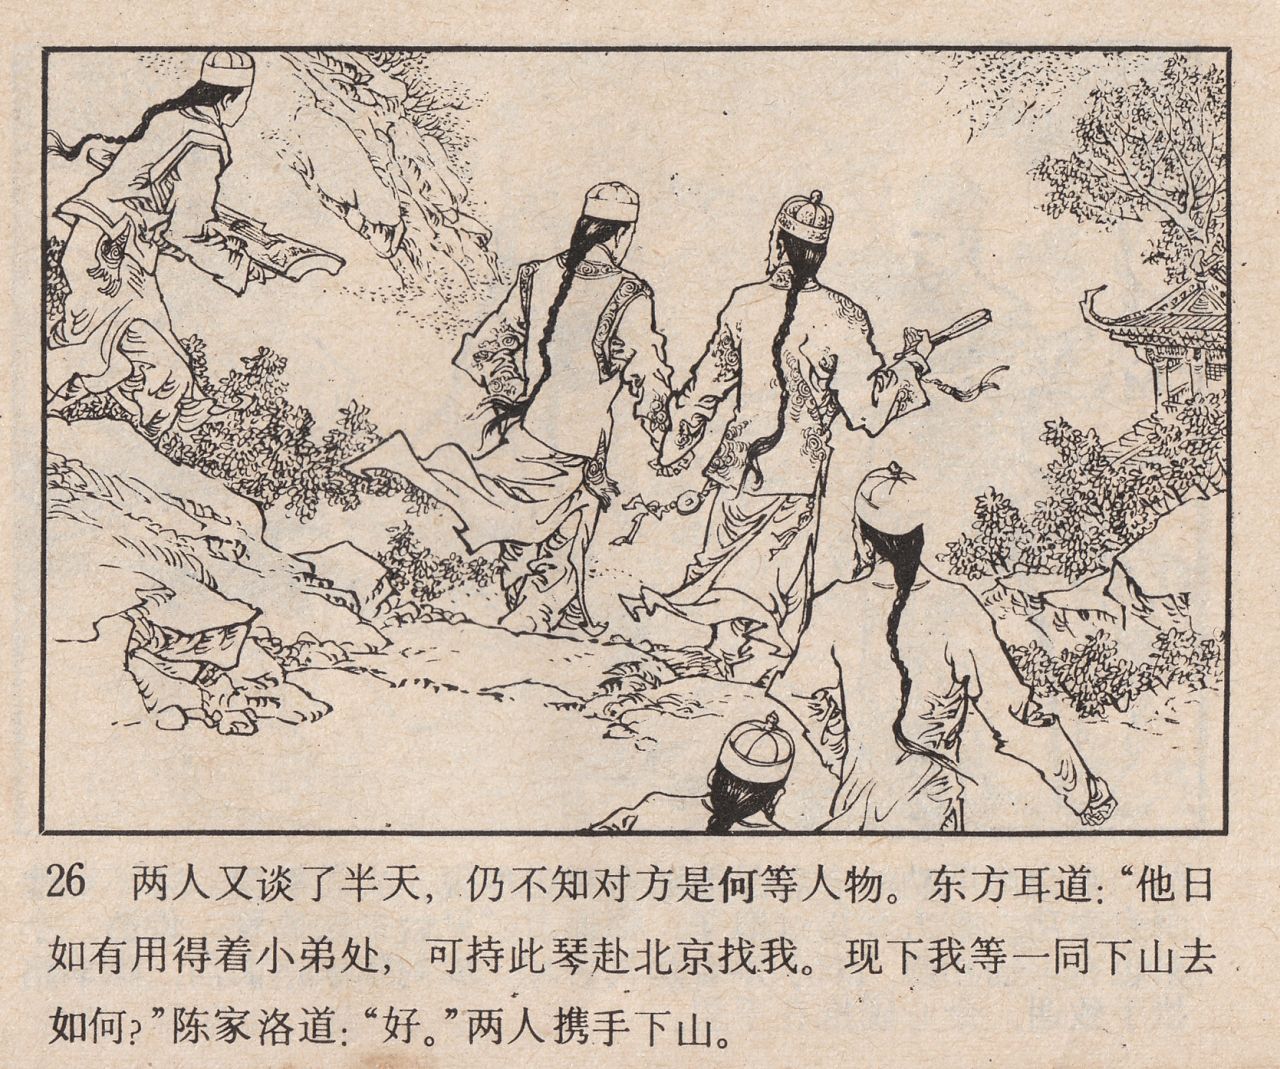 26 两人又谈了半天，仍不知对方是何等人物。东方耳道：“他日
如有用得着小弟处，可持此琴赴北京找我。现下我等一同下山去
如何？”陈家洛道：“好。”两人携手下山。